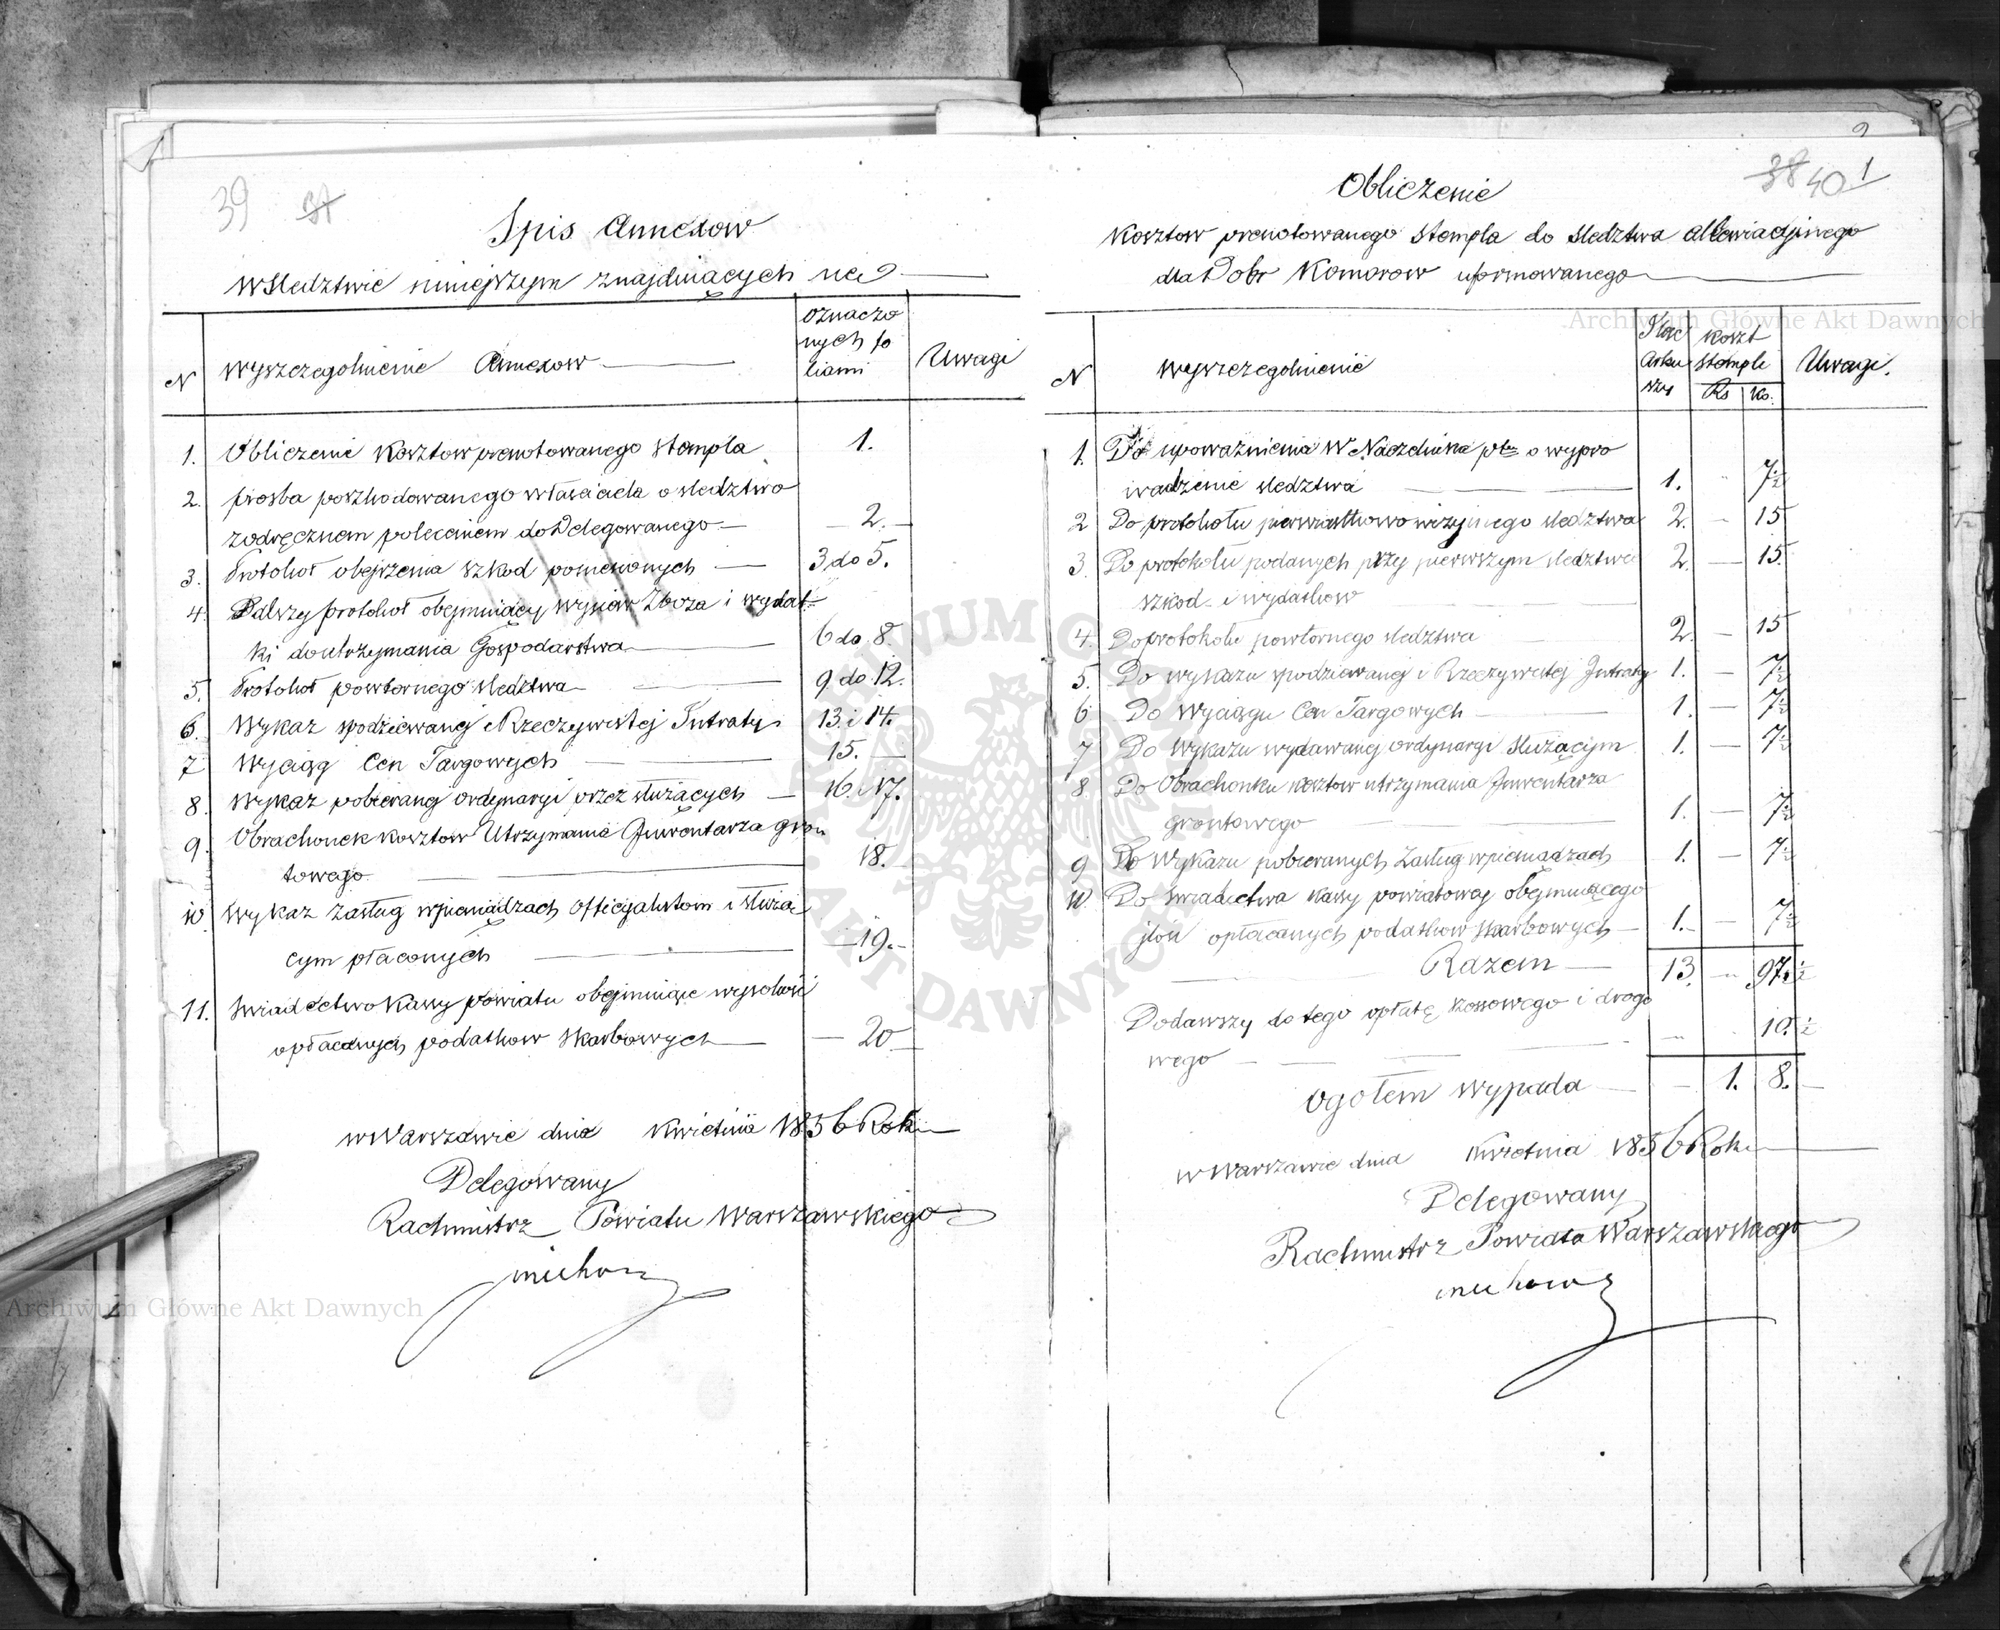 39 37
Spis Annexow
w śledztwie niniejszym znajdujących się
N
Wyszczegolnienie Annexow
oznaczo
nych fo
liami
Uwagi
1. Obliczenie kosztow prenotowanego stempla 1.
2. prosba poszkodowanego właściciela o śledztwo
z odręcznem poleceniem do Delegowanego 2.
3. Protokoł obejrzenia szkod poniesionych 3 do 5.
4. Dalszy protokoł obejmujący wysiew Zboza i wydat
ki do utrzymania Gospodarstwa 6 do 8.
5. Protokoł powtornego śledztwa 9 do 12.
6. Wykaz spodziewanej i Rzeczywistej Intraty 13. i 14.
7 Wyciąg Cen Targowych 15.
8. Wykaz pobieranej ordynaryi przez służących 16. i 17.
9. Obrachonek kosztow Utrzymania Inwentarza gron
towego 18.
10. Wykaz zasług w pieniądzach Officyalistom i służą
cym płaconych 19.
11. Swiadectwo Kassy powiatu obejmujące wysokość
opłacanych podatkow skarbowych 20
w Warszawie dnia Kwietnia 1856 Roku
Delegowany
Rachmistrz Powiatu Warszawskiego
2
38 40 1
Obliczenie
Kosztow prenotowanego stempla do śledztwa allewiacyjnego
dla Dobr Komorow uformowanego
N
Wyszczegolnienie
Ilosc
Arku
szy
Koszt
stempla
Rs Ko.
Uwagi.
1. Do upoważnienia W Naczelnika ptu o wypro
wadzenie śledztwa 1. 7½
2 Do protokołu pierwiastkowo wizyjnego śledztwa 2. 15
3. Do protokołu podanych przy pierwszym śledztwie 2. 15.
szkod i wydatkow
4. Do protokołu powtornego śledztwa 2. 15
5. Do wykazu spodziewanej i Rzeczywistej Intraty 1. 7½
6 Do Wyciągu Cen Targowych 1. 7½
7 Do Wykazu wydawanej ordynaryi służącym 1. 7½
8. Do Obrachonku kosztow utrzymania Inwentarza
grontowego 1. 7½
9 Do Wykazu pobieranych Zasług w pieniądzach 1. 7½
10. Do Swiadectwa Kassy powiatowej obejmującego
ilość opłacanych podatkow skarbowych 1. 7½
Razem 13. 97½
Dodawszy do tego opłatę kossowego i drogo
wego 10.½
Ogołem wypada 1. 8.
w Warszawie dnia Kwietnia 1856 Roku
Delegowany
Rachmistrz Powiatu Warszawskiego
Archiwum Główne Akt Dawnych
Archiwum Główne Akt Dawnych
ARCHIWUM GŁÓWNE AKT DAWNYCH